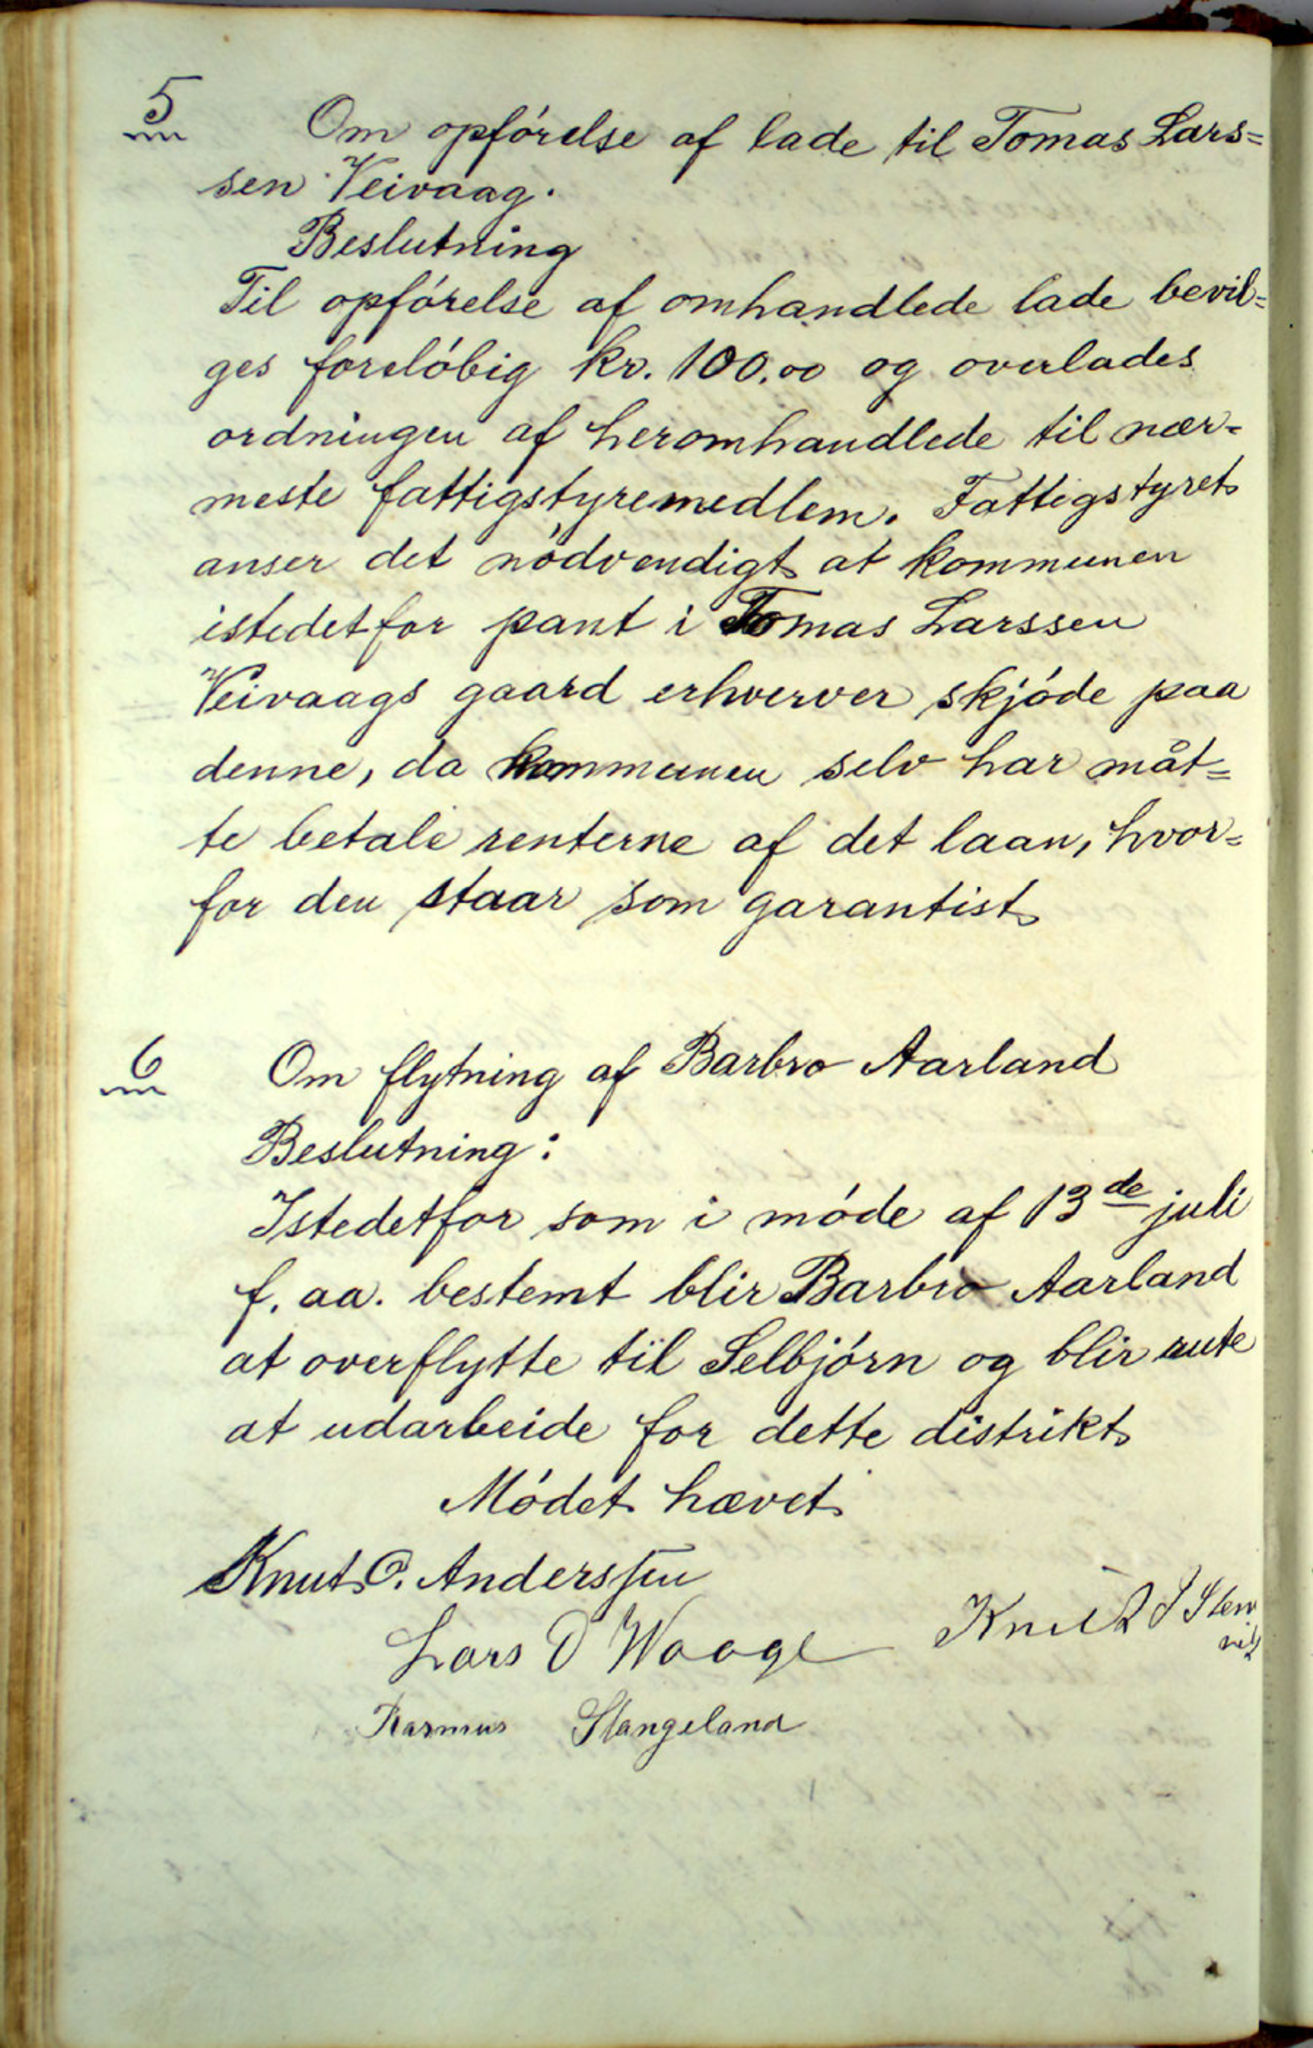 5
Om opførelse af lade til Tomas Lars=
sen Veivaag.
Beslutning
Til opførelse af omhandlede lade bevil=
ges foreløbig kr. 100.00 og overlades
ordningen af heromhandlede til nær=
meste fattigstyremedlem. Fattigstyret
anser det nødvendigt at kommunen
istedetfor pant i Tomas Larssen
Veivaags gaard erhverver skjøde paa
denne, da kommunen selv har måt=
te betale renterne af det laan, hvor=
for den staar som garantist
6
Om flytning af Barbro Aarland
Beslutning:
Istedetfor som i møde af 13de juli
f. aa. bestemt blir Barbro Aarland
at overflytte til Selbjørn og blir rute
at udarbeide for dette distrikt
Mødet hævet
Knut O. Anderssen
Lars O Waage
Knut
Rasmus Stangeland